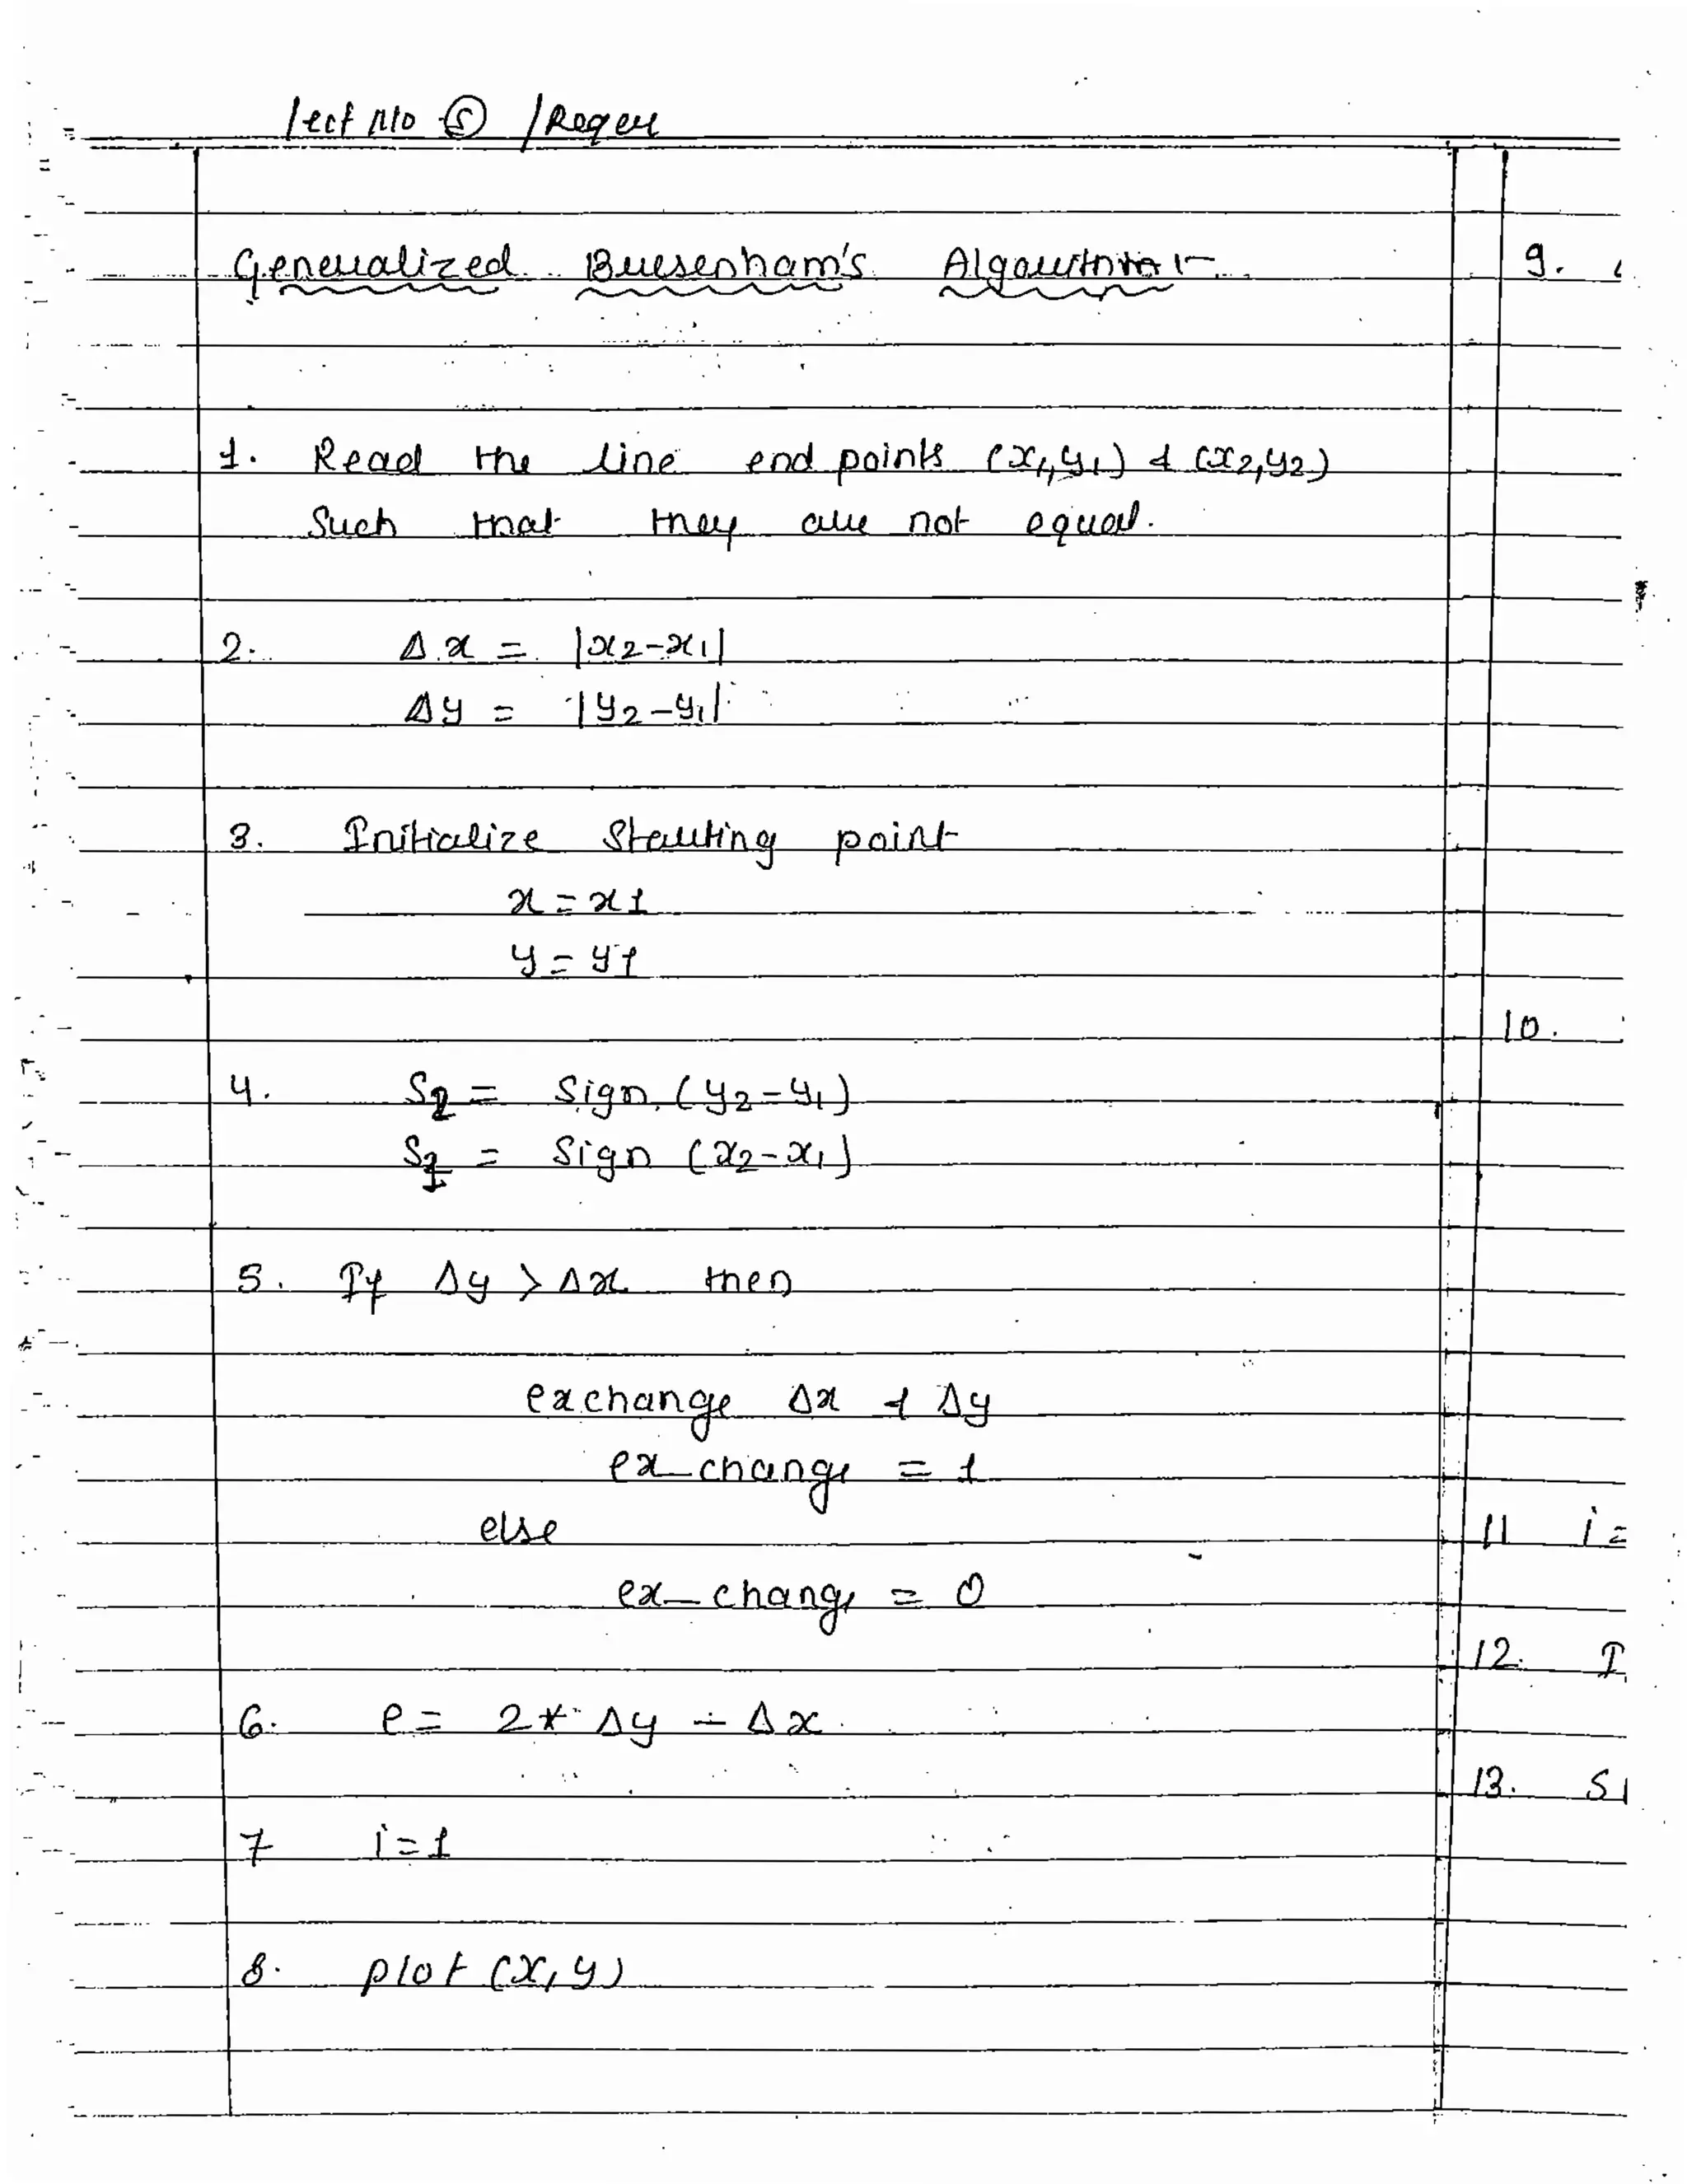 lect No ⑤
Generalized Bresenham's Algorithm
1. Read the line end points (x1,y1) & (x2,y2)
Such that they are not equal.
2. Δx = |x2-x1|
Δy = |y2-y1|
3. Initialize Starting point
x = x1
y = y1
4. S2 = Sign (y2-y1)
S1 = Sign (x2-x1)
5. If Δy > Δx then
exchange Δx & Δy
ex_change = 1
else
ex_change = 0
6. e = 2* Δy - Δx
7 i=1
8. plot (x,y)
9.
10.
11 i=
12. I
13. S